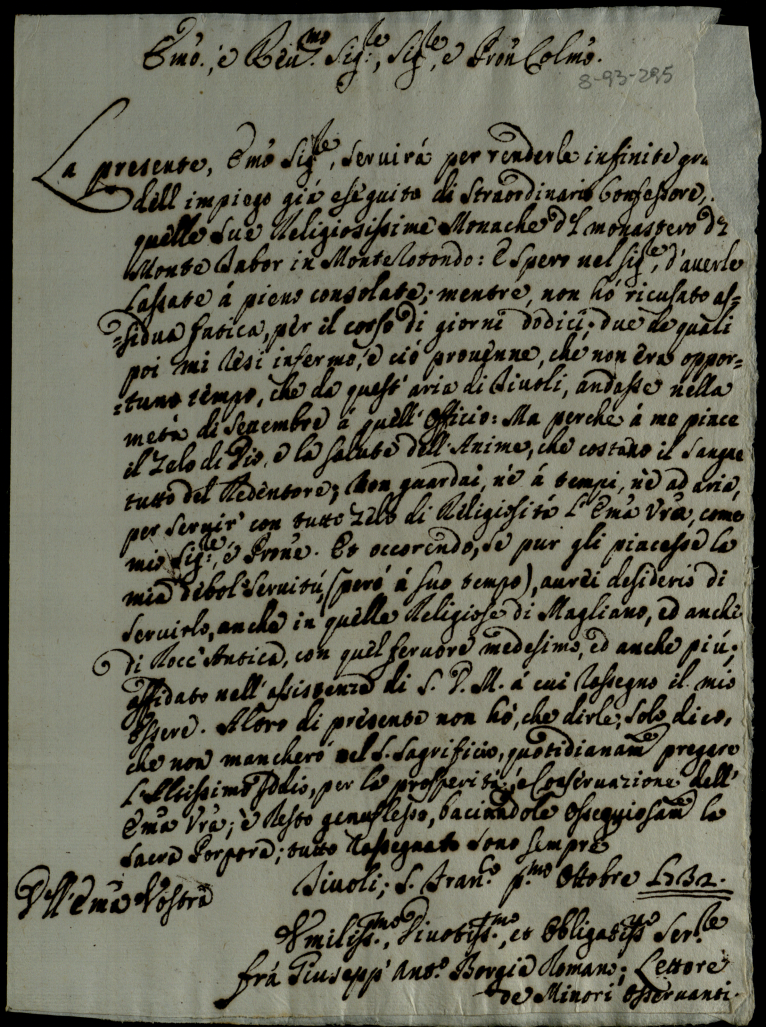 Emo., è Reu.mo Sig.re, Sig.re, e Pron Colmo.
8-93-295
La presente, Emo Sig.re, seruirá per renderle infinite gra
dell impiego giá eseguito di straordinario Confessore,
quelle sue Religiosissime Monache dl monastero di
Monte Tabor in Monte Rotondo: E spero nel Sig.re, d'auerle
lassate á pieno consolate; mentre, non hó ricusato as=
=sidua fatica, pèr il corso di giorni dodici; due de quali
poi mi rèsi infermo, e ció prouenne, che non èra oppor=
=tuno tèmpo, che da quest'aria di Tiuoli, andasse nella
metá di Settembre á quell'Officio: Ma perche á me piace
il zelo di Dio, e la salute dell'Anime, che costano il sangue
tutto del Redèntore; Non guardai, nè á tempi, nè ad aria,
per seruir' con tutto zelo di Religiositá L'Ema Vra, come
mio Sig.re, è Prone. Et occorèndo, se pur gli piacesse la
mia debol' Seruitú, (peró á suo tempo), aurèi desiderio di
seruirlo, anche in quèlle Religiose di Magliano, ed anche
di Rocc'Antica, con quèl feruore medesimo, ed anche piú;
affidato nell'assistenza di S. D. M. á cui rassegno il mio
èssere. Altro di presènte non hó, che dirle; solo, dico,
che non mancheró nel S. Sagrificio, quotidianam.e pregare
L'Altissimo Iddio, per la prosperitá, e Conseruazione dell'
Ema Vra; è resto genuflesso, baciandole ossequiosam.e la
Sacra Porpora; tutto rassegnato sono sempre
Tiuoli; S. Fran.co p.mo Ottobre 1732.
Dell'Ema Vostra
Vmiliss.mo, Diuotiss.mo, et Obligatiss.mo Ser.re
frá Giusepp' Ant.o Borgia Romano; Lettore
de Minori Osseruanti.